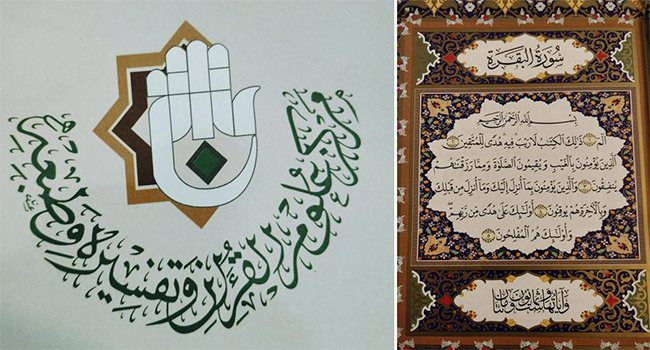 مركز علوم القرآن وتفسيره وطبعه
سُورَةُ البَقَرَة
بِسْمِ اللهِ الرَّحْمٰنِ الرَّحِيمِ
الٓمٓ ذٰلِكَ الْكِتَابُ لَا رَيْبَ فِيهِ هُدًى لِلْمُتَّقِينَ
الَّذِينَ يُؤْمِنُونَ بِالْغَيْبِ وَيُقِيمُونَ الصَّلٰوةَ وَمِمَّا رَزَقْنَاهُمْ
يُنْفِقُونَ وَالَّذِينَ يُؤْمِنُونَ بِمَا أُنْزِلَ إِلَيْكَ وَمَا أُنْزِلَ مِنْ قَبْلِكَ
وَبِالْآخِرَةِ هُمْ يُوقِنُونَ أُولٰئِكَ عَلَى هُدًى مِنْ رَبِّهِمْ
وَأُولٰئِكَ هُمُ الْمُفْلِحُونَ
وآياتها مائتان وست وثمانون